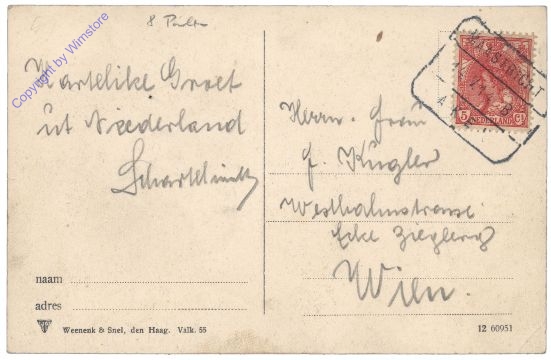 8
Copyright by Wimstore
Hartelike Groet
ut Nederland
Herrn. Frau
F. Kugler
Westbahnstrasse
Ecke Zieglerg
Wien.
MAASTRICHT
5 NEDERLAND Ct
naam
adres
Weenenk & Snel, den Haag. Valk. 55
12 60951